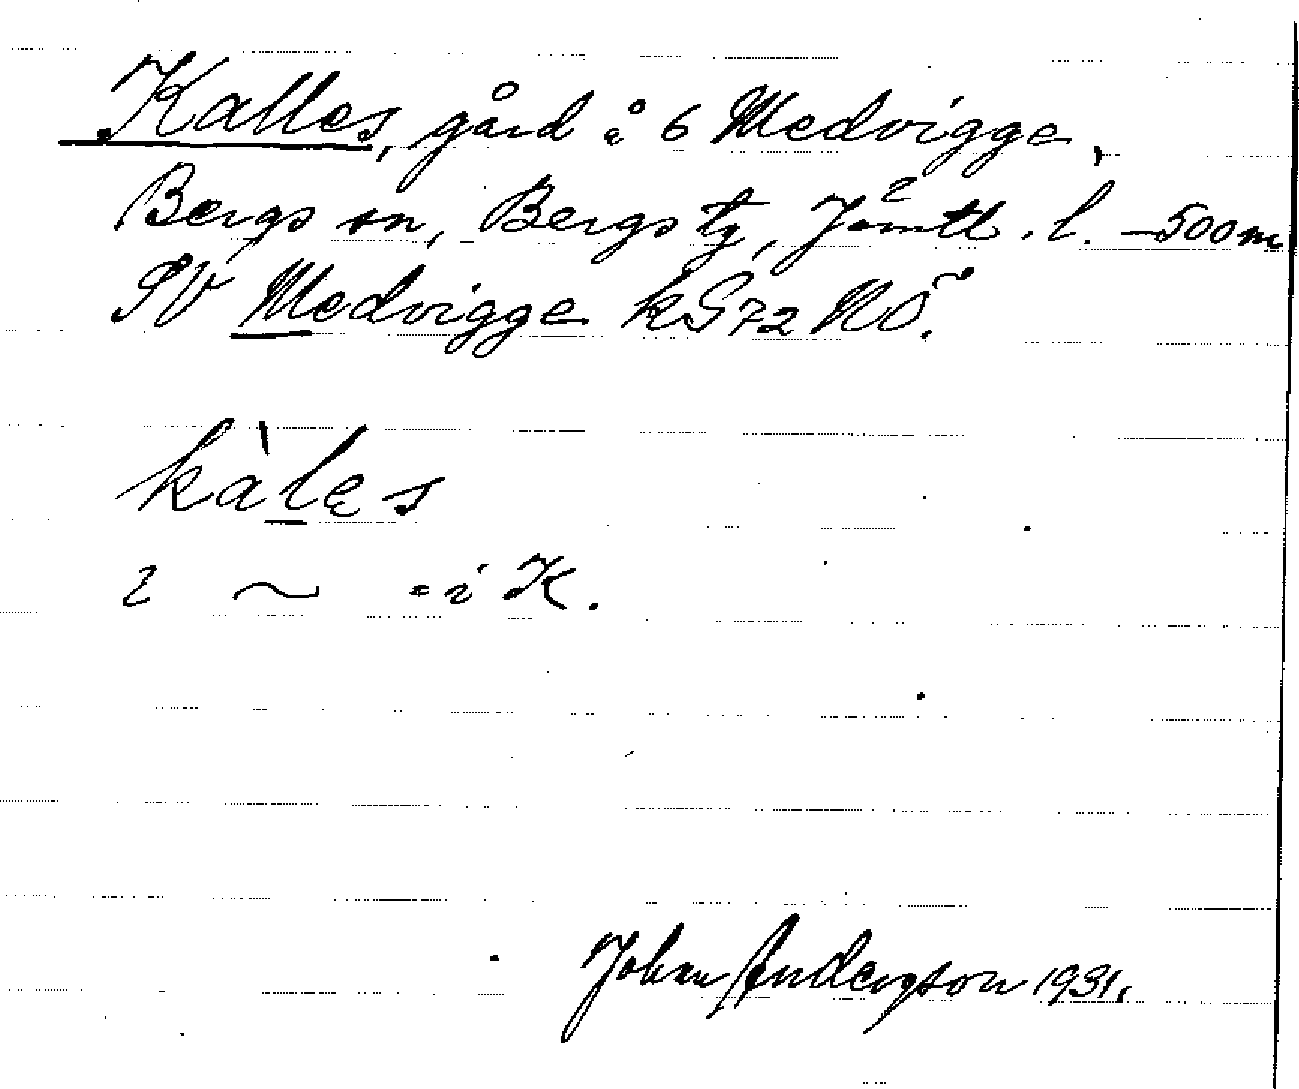 Kalles, gård å 6 Medvigge,
Bergs sn, Bergs tg, Jämtl. l. – 500 m
SV Medvigge k G 72 NÖ.
kàles
i ~ = i K.
Johan Anderson 1931.